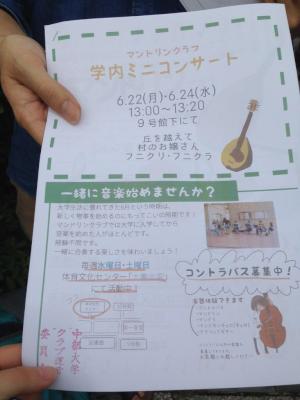 マンドリンクラブ
学内ミニコンサート
6.22(月)・6.24(水)
13:00〜13:20
9号館下にて
丘を越えて
村のお嬢さん
フニクリ・フニクラ
一緒に音楽始めませんか？
大学生活に慣れてきた6月という時期は、
新しく物事を始めるのにもってこいの時期です！
マンドリンクラブでは大学に入学してから
音楽を始めた人がほとんどです。
経験不問です。
一緒に合奏する楽しさを味わいましょう！
毎週水曜日・土曜日
体育文化センター
にて活動中！
コントラバス募集中！
楽器体験できます
・マンドリン
・マンドラ
・ギター
中部大学
クラブ運営
委員会